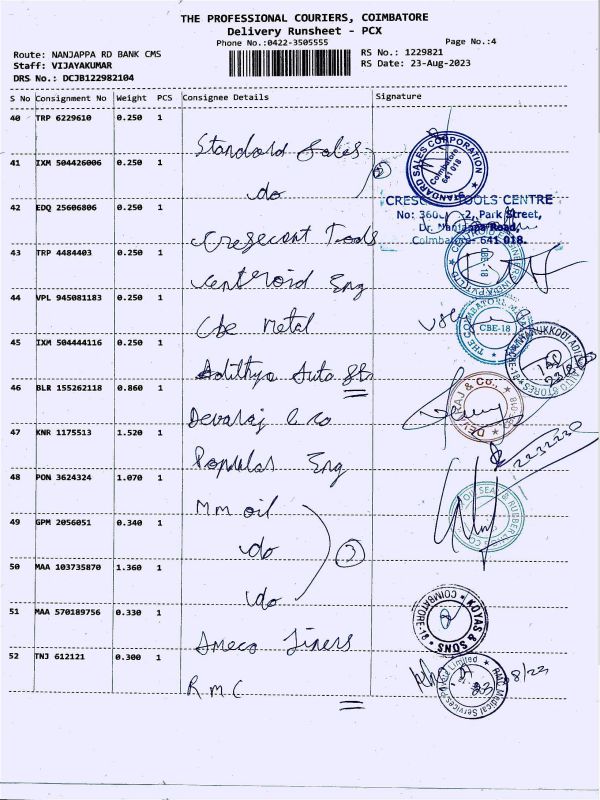 THE PROFESSIONAL COURIERS, COIMBATORE
Delivery Runsheet - PCX
Phone No.:0422-3505555 Page No.:4
Route: NANJAPPA RD BANK CMS RS No.: 1229821
Staff: VIJAYAKUMAR RS Date: 23-Aug-2023
DRS No.: DCJB122982104
S No Consignment No Weight PCS Consignee Details Signature
40 TRP 6229610 0.250 1
Standard Sales
STANDARD SALES CORPORATION
Coimbatore
641 018
41 IXM 504426006 0.250 1
do
42 EDQ 25606806 0.250 1
Crescent Tools
CRESCENT TOOLS CENTRE
Park Street,
Dr. Nanjappa Road,
Coimbatore- 641 018.
43 TRP 4484403 0.250 1
Centroid Eng
CBE-18
44 VPL 945081183 0.250 1
Cbe metal
THE COIMBATORE
CBE-18
45 IXM 504444116 0.250 1
Adithya Auto
46 BLR 155262118 0.860 1
Devaraj & co
DEVRAJ & Co.,
47 KNR 1175513 1.520 1
Popular Eng
2232230
48 PON 3624324 1.070 1
mm oil
OIL SEAL & RUBBER
49 GPM 2056051 0.340 1
do
50 MAA 103735870 1.360 1
do
51 MAA 570189756 0.330 1
Ameco Liners
KOYAS & SONS
COIMBATORE-18
52 TNJ 612121 0.300 1
R.M.C
RMC Medical Services Private Limited